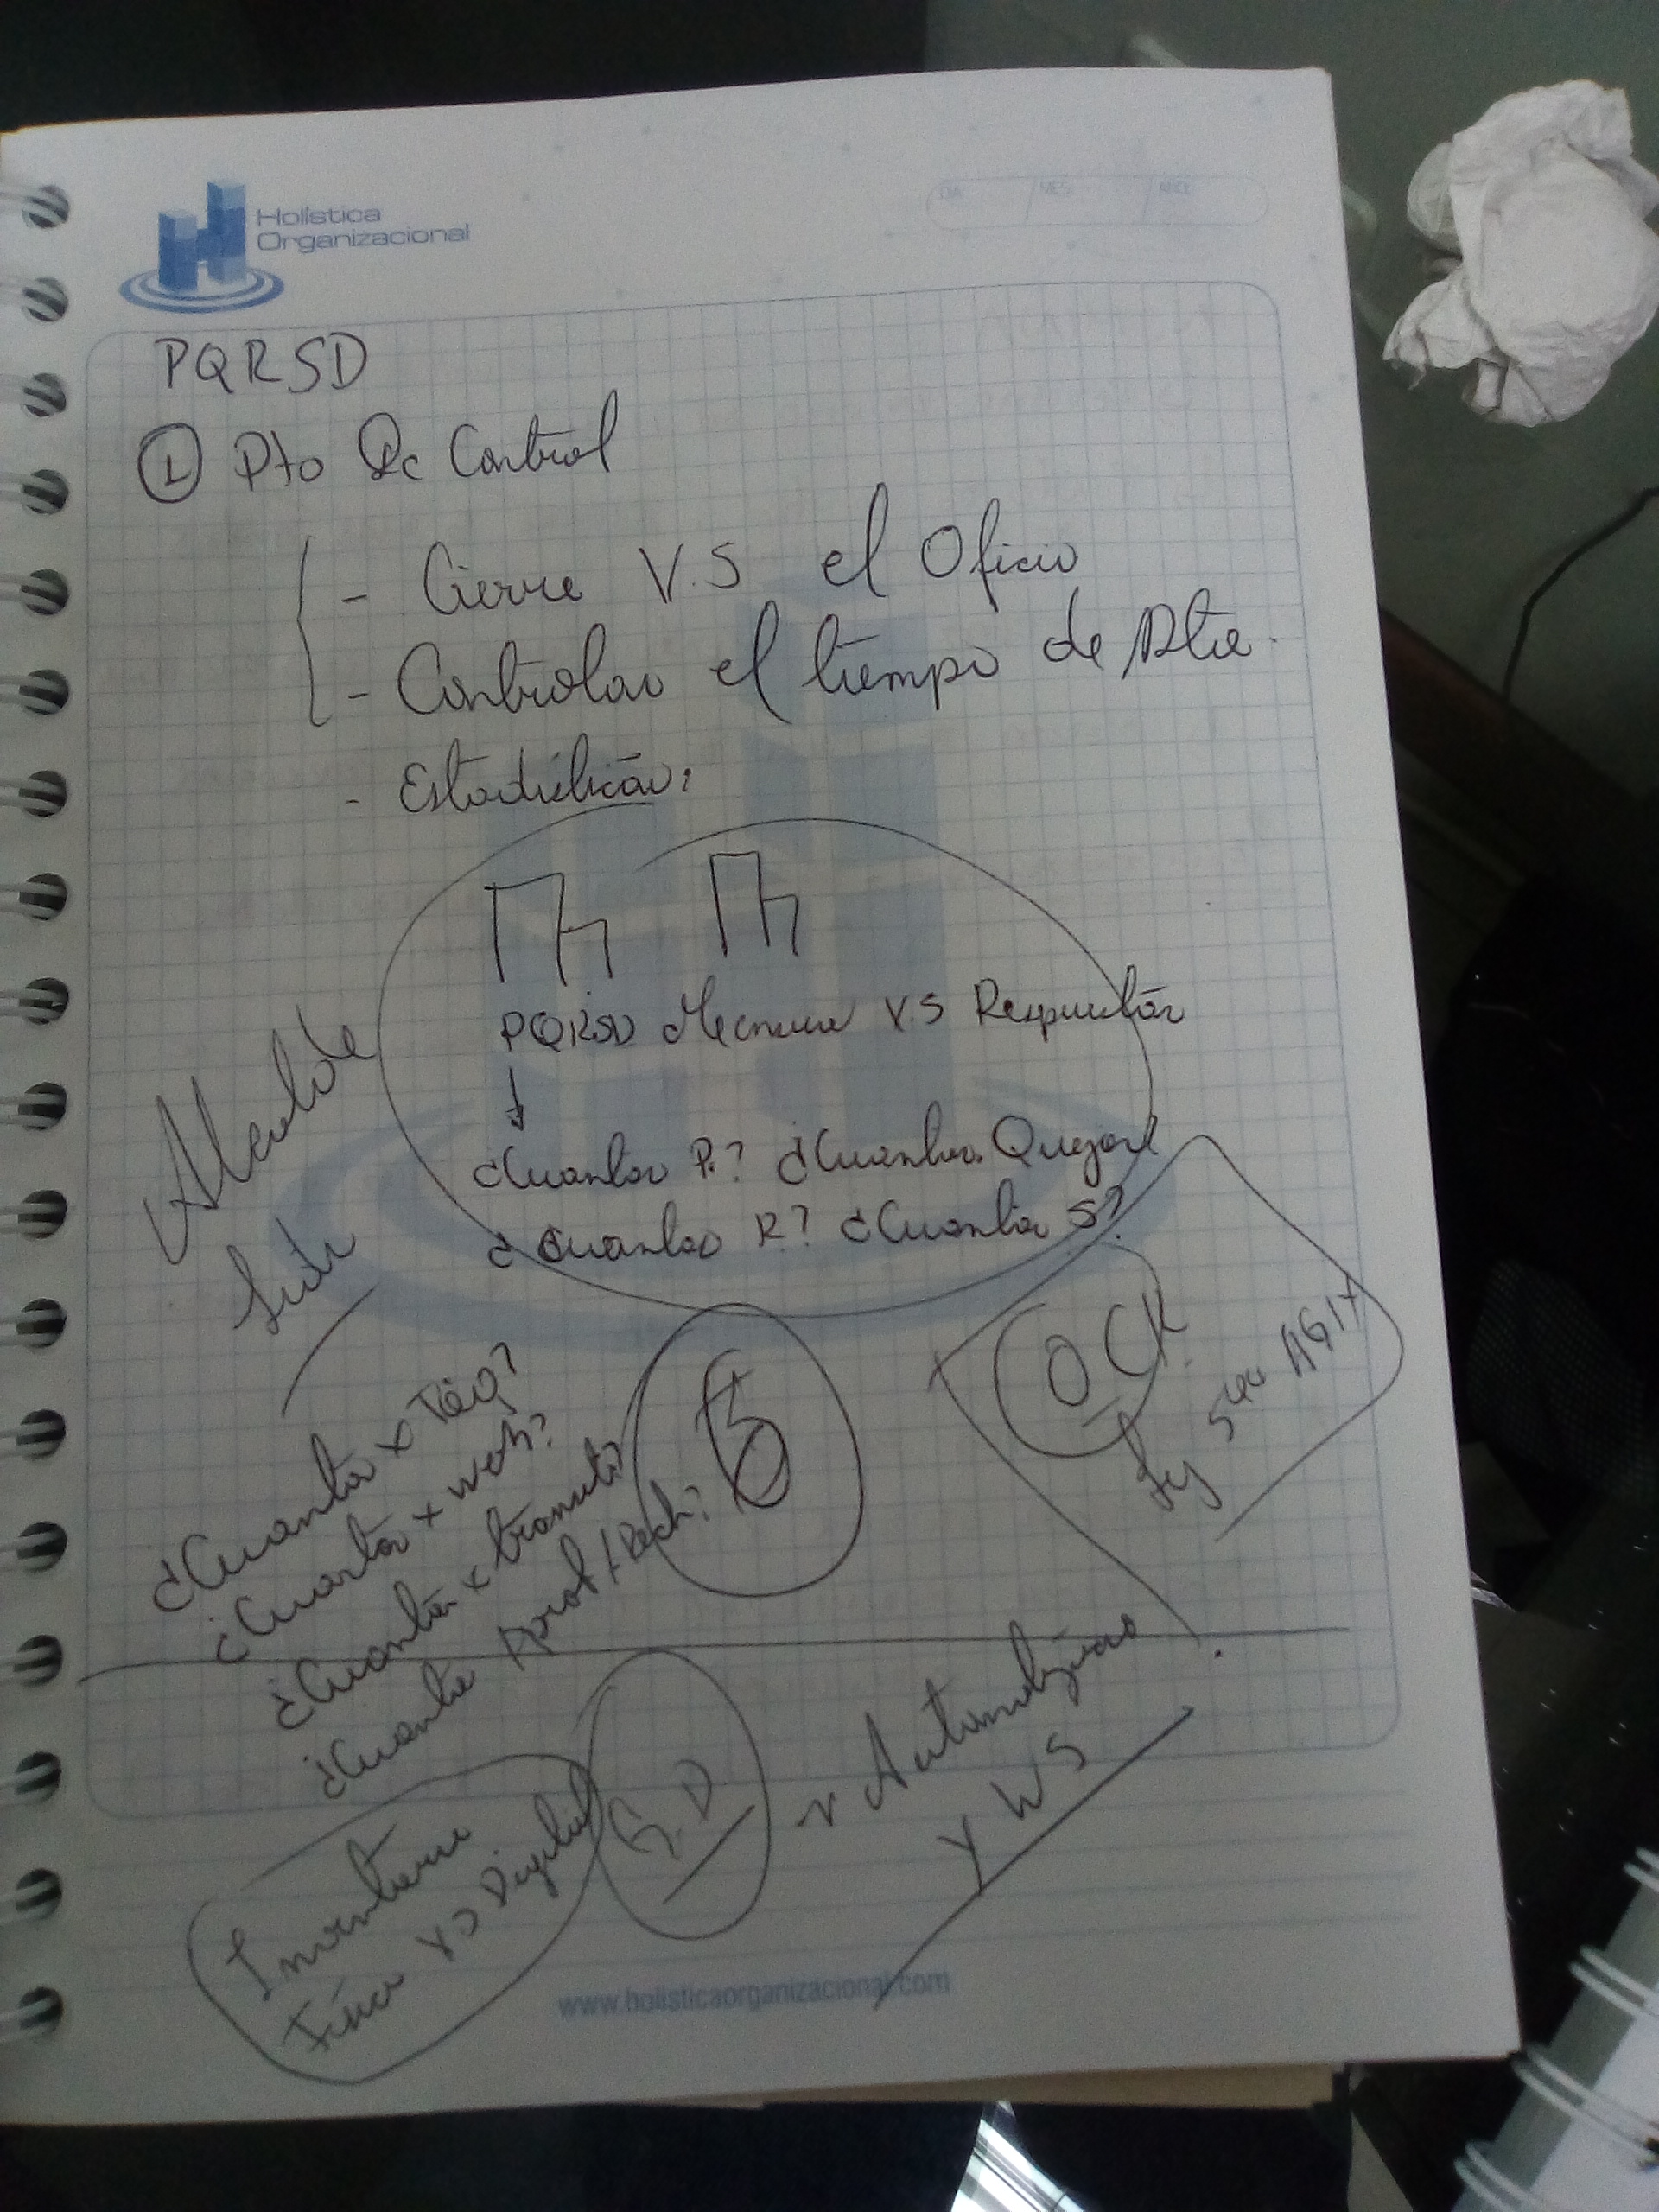 Holística
Organizacional
DIA MES AÑO
PQRSD
① Pto De Control
- Cierre V.S el Oficio
- Controlar el tiempo de Rta.
- Estadísticas:
PQRSD V.S Respuestas
¿Cuantas P.? ¿Cuantas Quejas
¿Cuantas R? ¿Cuantas S?
Alcalde
¿Cuantas x
¿Cuantas x web?
¿Cuantas x tramite?
¿Cuantas Aprob/Rech?
5
OCR
Ley 594 AGN
Inventario
Físico VS Digital
G.D
Y WS
www.holisticaorganizacional.com